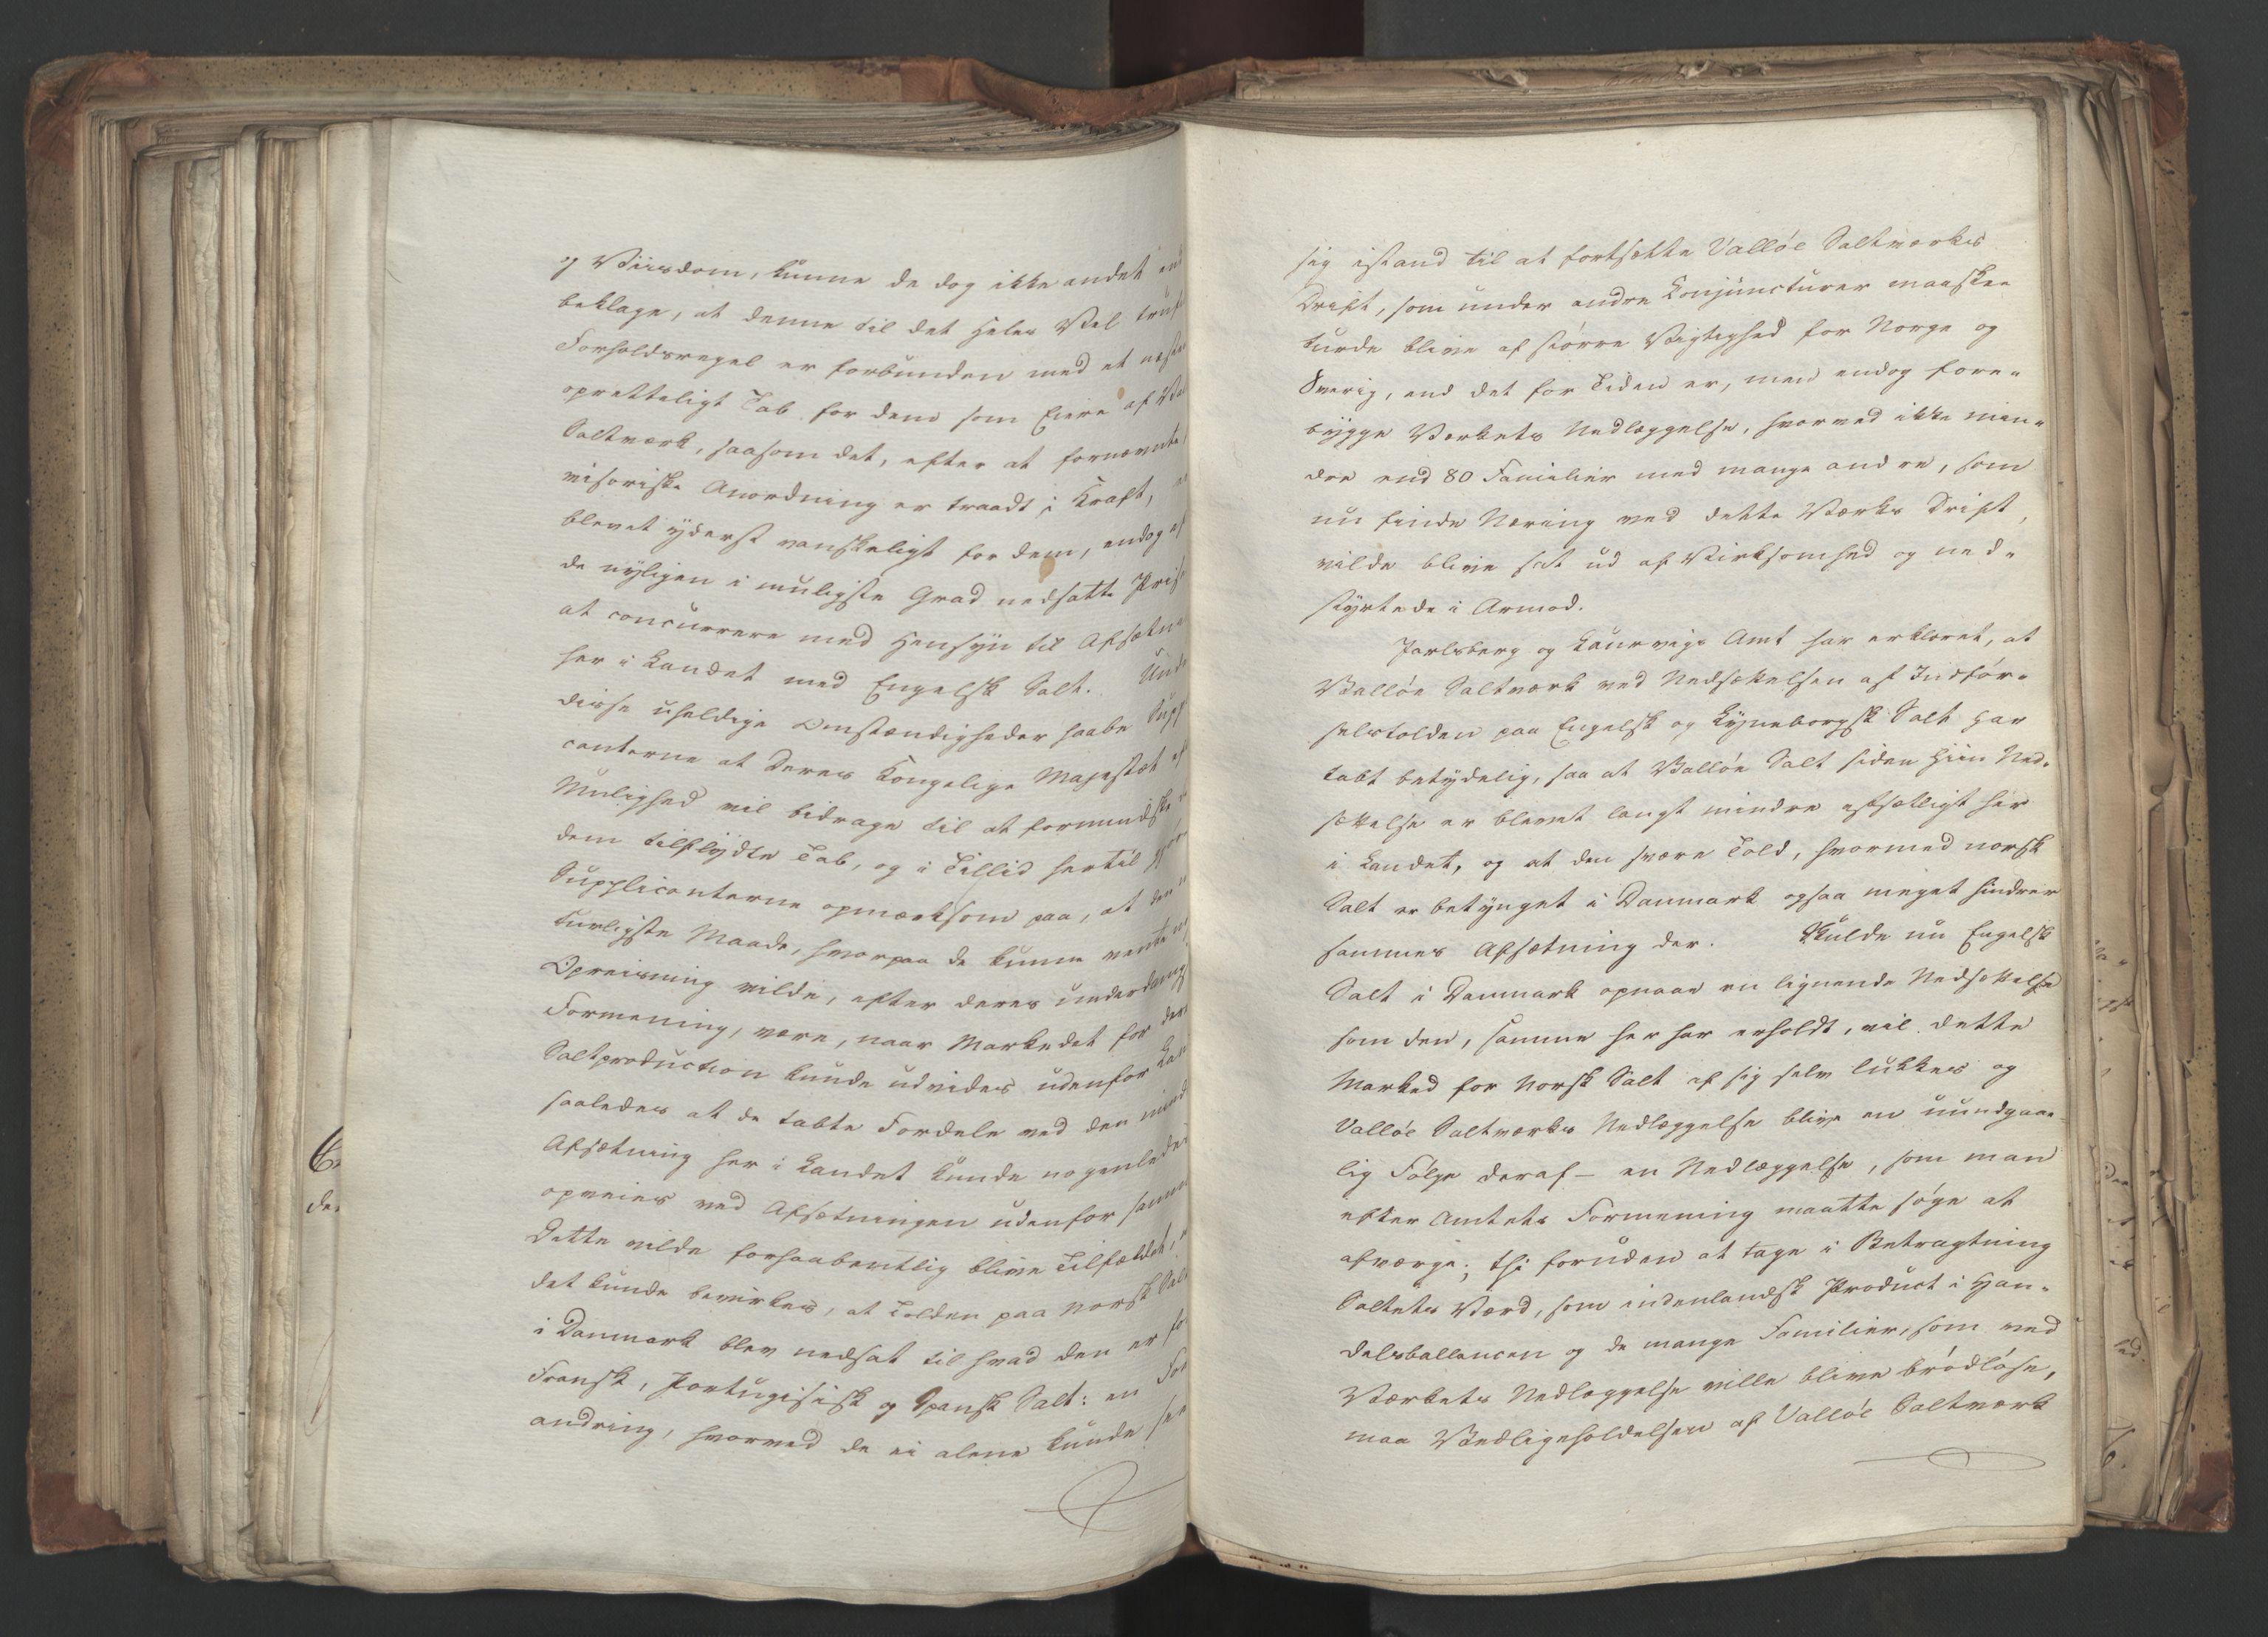 og Viisdom, kunne de dog ikke andet end
beklage, at denne til det Heles Vel
Forholdsregel er forbunden med et
opretteligt Tab for dem som Eiere af
Saltværk, saasom det, efter at fornævnte
visoriske Anordning er traadt i Kraft,
blevet yderst vanskeligt for dem, endog
de nyligen i muligste Grad nedsatte
at concurrere med Hensyn til Afsætn
her i Landet med Engelsk Salt. Und
disse uheldige Omstændigheder haabe Supp
canterne at Deres Kongelige Majestæt
Mulighed vil bidrage til at formindske
dem tilflydte Tab, og i Tillid hertil gjør
Supplicanterne opmærksom paa, at den
turligste Maade, hvorpaa de kunne vente
Opreisning vilde, efter deres underdanig
Formening, være, naar Markedet for
Saltproduction kunde udvides udenfor Lan
saaledes at de tabte Fordele ved den mind
Afsætning her i Landet kunde nogenlede
opveies ved Afsætningen udenfor samm
Dette vilde forhaabentlig blive Tilfældet,
det kunde bevirkes, at Tolden paa norsk Salt
i Danmark blev nedsat til hvad den er for
Fransk, Portugisisk og Spansk Salt: en For
andring, hvorved de ei alene kunde see
sig istand til at fortsætte Valløe Saltværks
Drift, som under andre Conjuncturer maaskee
turde blive af større Vigtighed for Norge og
Sverig, end det for Tiden er, men endog fore-
bygge Værkets Nedlæggelse, hvorved ikke min-
dre end 80 Familier med mange andre, som
nu finde Næring ved dette Værks Drift,
vilde blive sat ud af Virksomhed og ned-
styrtede i Armod.
Jarlsberg og Laurvigs Amt har erklæret, at
Valløe Saltværk ved Nedsættelsen af Indfør-
selstolden paa Engelsk og Lyneborgsk Salt har
tabt betydelig, saa at Valløe Salt siden hiin Ned-
sættelse er blevet langt mindre afsætligt her
i Landet, og at den svære Told, hvormed norsk
Salt er betynget i Danmark ogsaa meget hindrer
sammes Afsætning der. Skulde nu Engelsk
Salt i Danmark opnaae en lignende Nedsættelse
som den, samme her har erholdt, vil dette
Marked for Norsk Salt af sig selv lukkes og
Valløe Saltværks Nedlæggelse blive en uundgaae-
lig Følge deraf – en Nedlæggelse, som man
efter Amtets Formening maatte søge at
afværge; thi foruden at tage i Betragtning
Saltets Værd, som indenlandsk Product i Han-
delsballancen og de mange Familier, som ved
Værkets Nedlæggelse ville blive brødløse,
maa Vedligeholdelsen af Valløe Saltværk